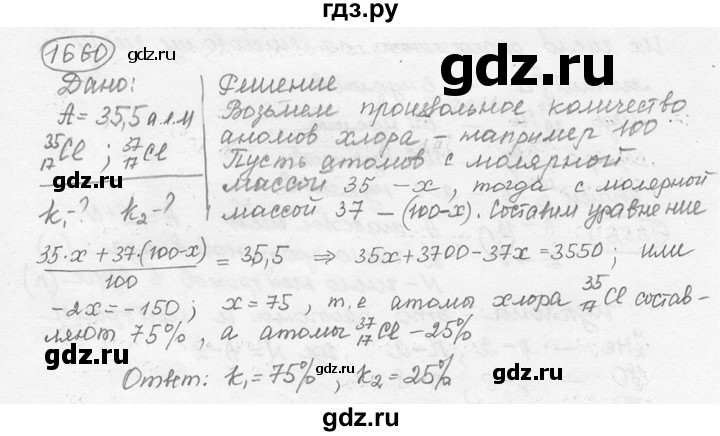 гдз.ру
1660
gdz.ru
gdz.ru
Дано:
A = 35,5 а.е.м
³⁵₁₇Cl ; ³⁷₁₇Cl
gdz.ru
k₁-? k₂-?
Решение
gdz.ru
Возьмем произвольное количество
атомов хлора, – например 100
gdz.ru
Пусть атомов с молярной
массой 35 – x, тогда с молярной
массой 37 – (100-x). Составим уравнение
(35·x + 37·(100-x))/100 = 35,5 ⇒ 35x+3700-37x = 3550, или
gdz.ru
-2x = -150; x = 75, т.е атомы хлора ³⁵₁₇Cl состав-
ляют 75%, а атомы ³⁷₁₇Cl – 25%
gdz.ru
gdz.ru
Ответ: k₁ = 75%, k₂ = 25%
gdz.ru
gdz.ru